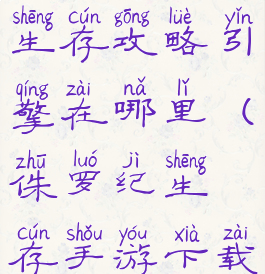 shēng cún gōng lüè yǐn
生存攻略引
qíng zài nǎ lǐ
擎在哪里（
zhū luó jì shēng
侏罗纪生
cún shǒu yóu xià zài
存手游下载